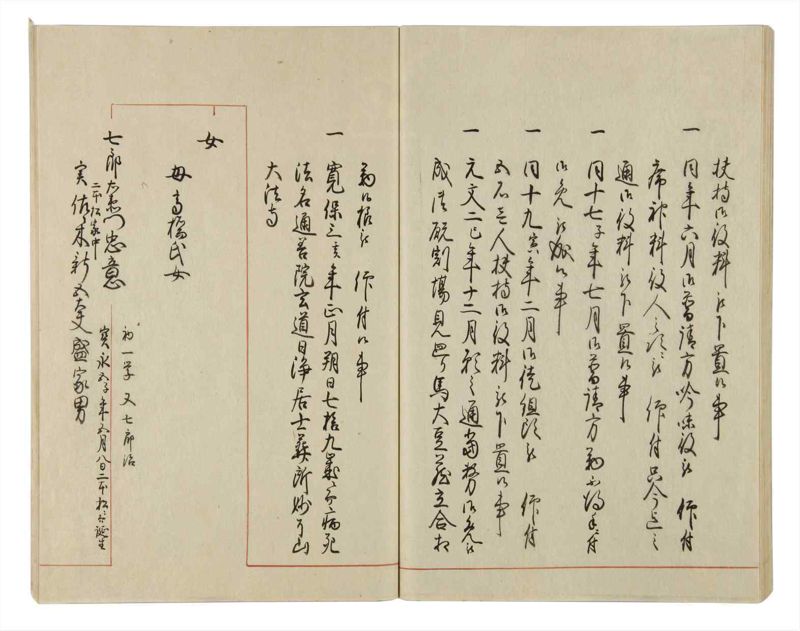 扶持御役料被下置候事
一 同年六月御普請方吟味役被 仰付
席神料役人之次被 仰付只今迄之
通御役料被下置候事
一 同十七子年七月御普請方勤 付
御免被成候事
一 同十九寅年二月御徒組頭被 仰付
五石三人扶持御役料被下置候事
一 元文二巳年十二月願之通当勢御免被
成 割場見 馬大豆蔵立合
勤候様被 仰付候事
一 寛保三亥年正月朔日七拾九歳ニ而病死
法名通菩院玄道日浄居士葬所妙 山
大法寺
女
母高橋氏女
七郎左衛門忠意
二本松家中
実佐木新五大夫盛家男
初一学 又七郎治
宝永五子年五月八日二本松ニ而誕生